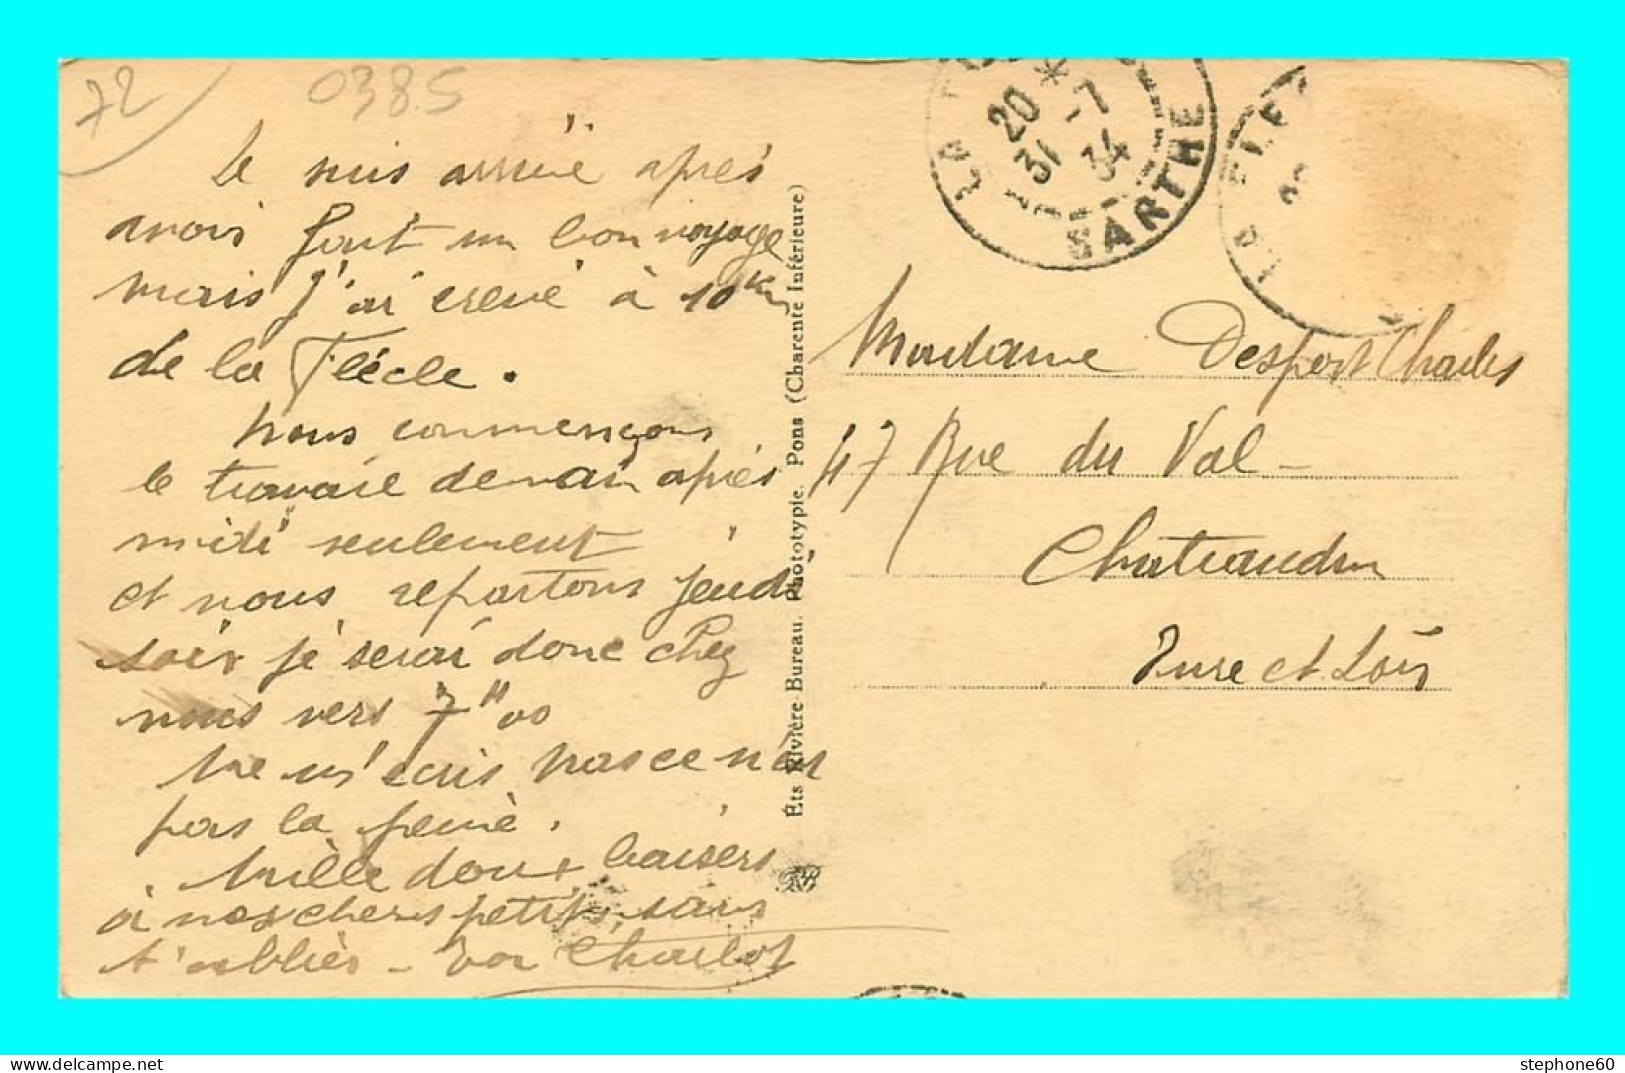 72
0385
Je suis arrivé après
avoir fait un bon voyage
mais j'ai crevé à 10 Km
de la Flèche.
Nous commençons
le travail demain après
midi seulement
et nous repartons jeudi
soir je serai donc chez
nous vers 7 H 00
Ne m'écris pas ce n'est
pas la peine.
Mille doux baisers
à nos chers petits, sans
t'oublier - Ton Charlot
Éts Rivière-Bureau. Phototypie. Pons (Charente Inférieure)
RB
LA
20 *
31 -7
34
SARTHE
LA FLE
Madame Desport Charles
47 Rue du Val -
Chateaudun
Eure et Loir
stephone60